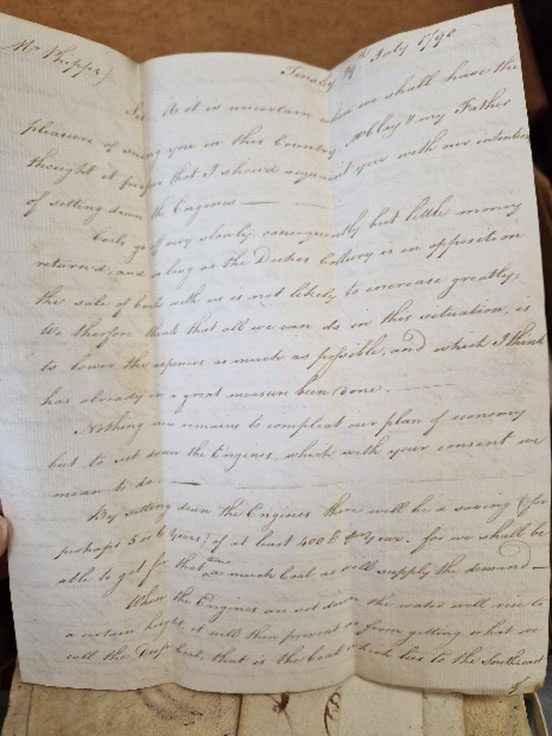 Mr Phipps)
Tinsley 29th July 1790
Sir As it is uncertain when we shall have the
pleasure of seeing you in this Country, & my Father
thought it proper that I should acquaint you with our intentions
of setting down the Engines —
Coals go off very slowly, consequently but little money
returned, and as long as the Dukes Colliery is in opposition
the sale of Coals with us is not likely to increase greatly,
We therfore think that all we can do in this situation, is
to lower the expences as much as possible, and which I think
has already in a great measure been done. —
Nothing now remains to compleat our plan of economy
but to set down the Engines, which with your consent we
mean to do —
By setting down the Engines there will be a saving (for
perhaps 5 or 6 Years) of at least 400£ per Year. for we shall be
able to get for that time as much Coal as will supply the demand —
When the Engines are set down the water will rise to
a certain height, it will then prevent us from getting what we
call the Deep Coal, that is the Coal which lies to the Southeast
of